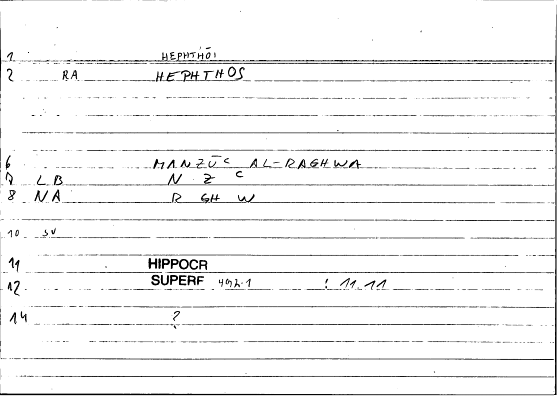 1 HEPHTHŌI
2 RA HEPHTHOS
6 MANZŪC AL-RAGHWA
7 LB N Z C
8 NA R GH W
10 SV
11 HIPPOCR
12 SUPERF : 11.11
14 ?